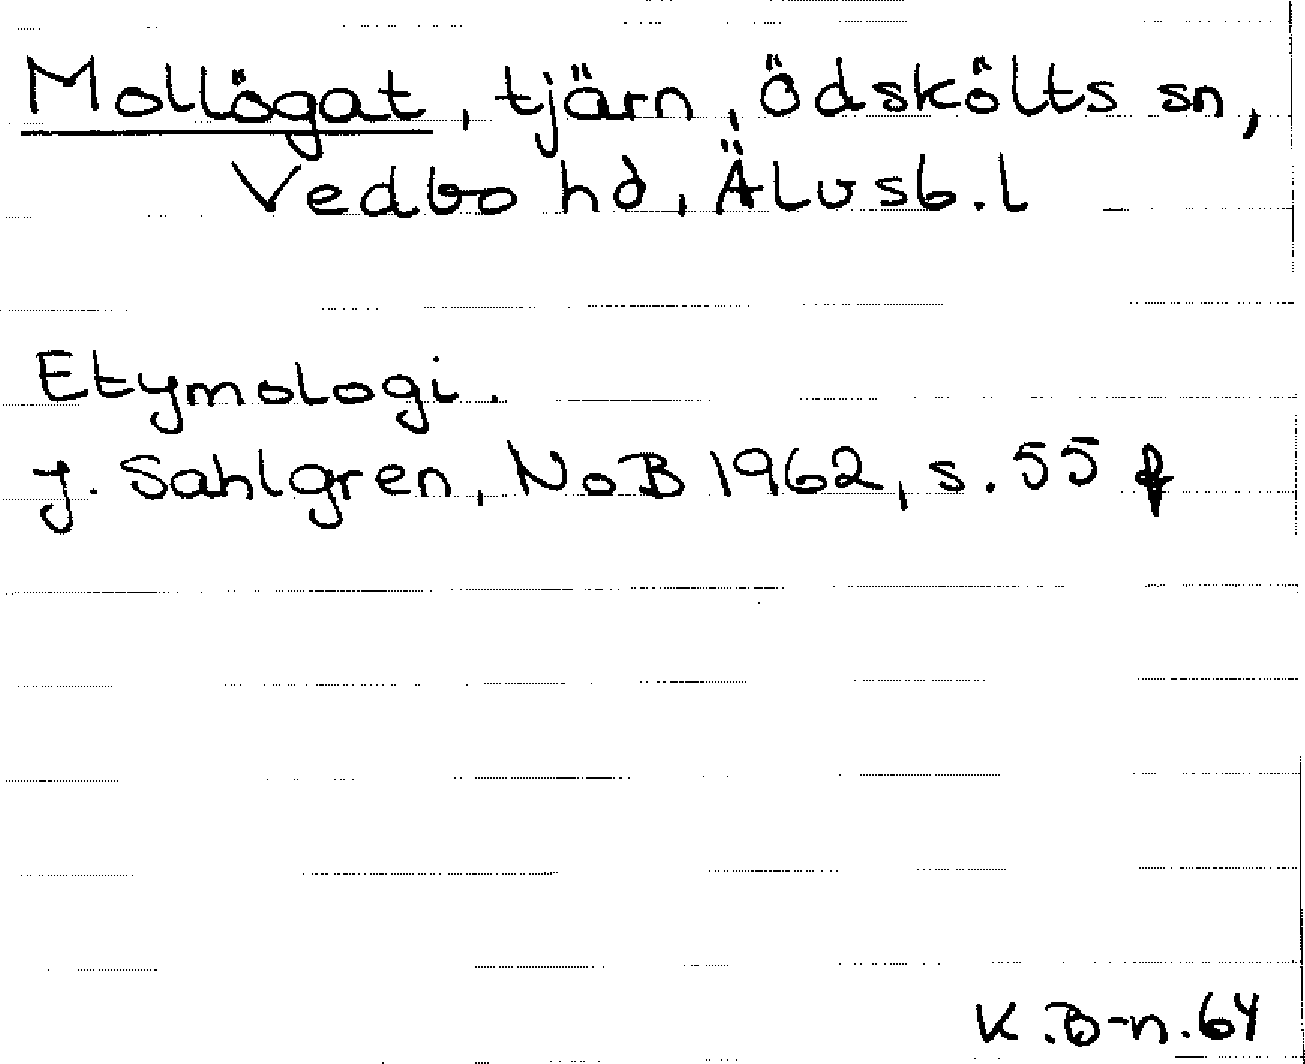 Mollögat, tjärn, Ödskölts sn,
Vedbo hd, Älvsb. l
Etymologi.
J. Sahlgren, NoB 1962, s. 55 f
K.B-n. 64